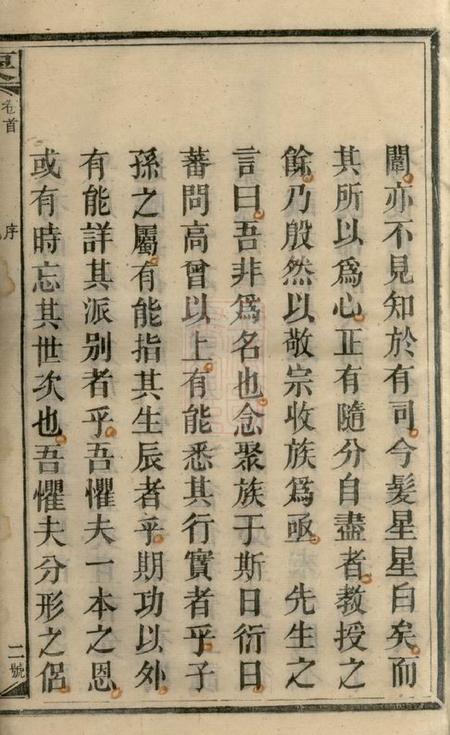 闈亦不見知於有司今髮星星白矣而
其所以爲心正有隨分自盡者教授之
餘乃殷然以敬宗收族爲亟　先生之
言曰吾非爲名也念聚族于斯日衍日
蕃問高曾以上有能悉其行實者乎子
孫之屬有能指其生辰者乎期功以外
有能詳其派别者乎吾懼夫一本之恩
或有時忘其世次也吾懼夫分形之侣
卷首
序
二號